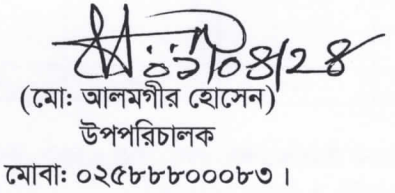 (মো: আলমগীর হোসেন)
উপপরিচালক
মোবা: ০২৫৮৮৮০০০৮৩।